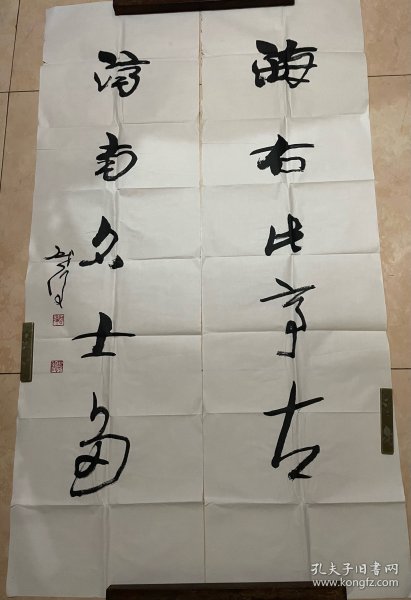 海右此亭古
济南名士多
孔夫子旧书网
www.kongfz.com